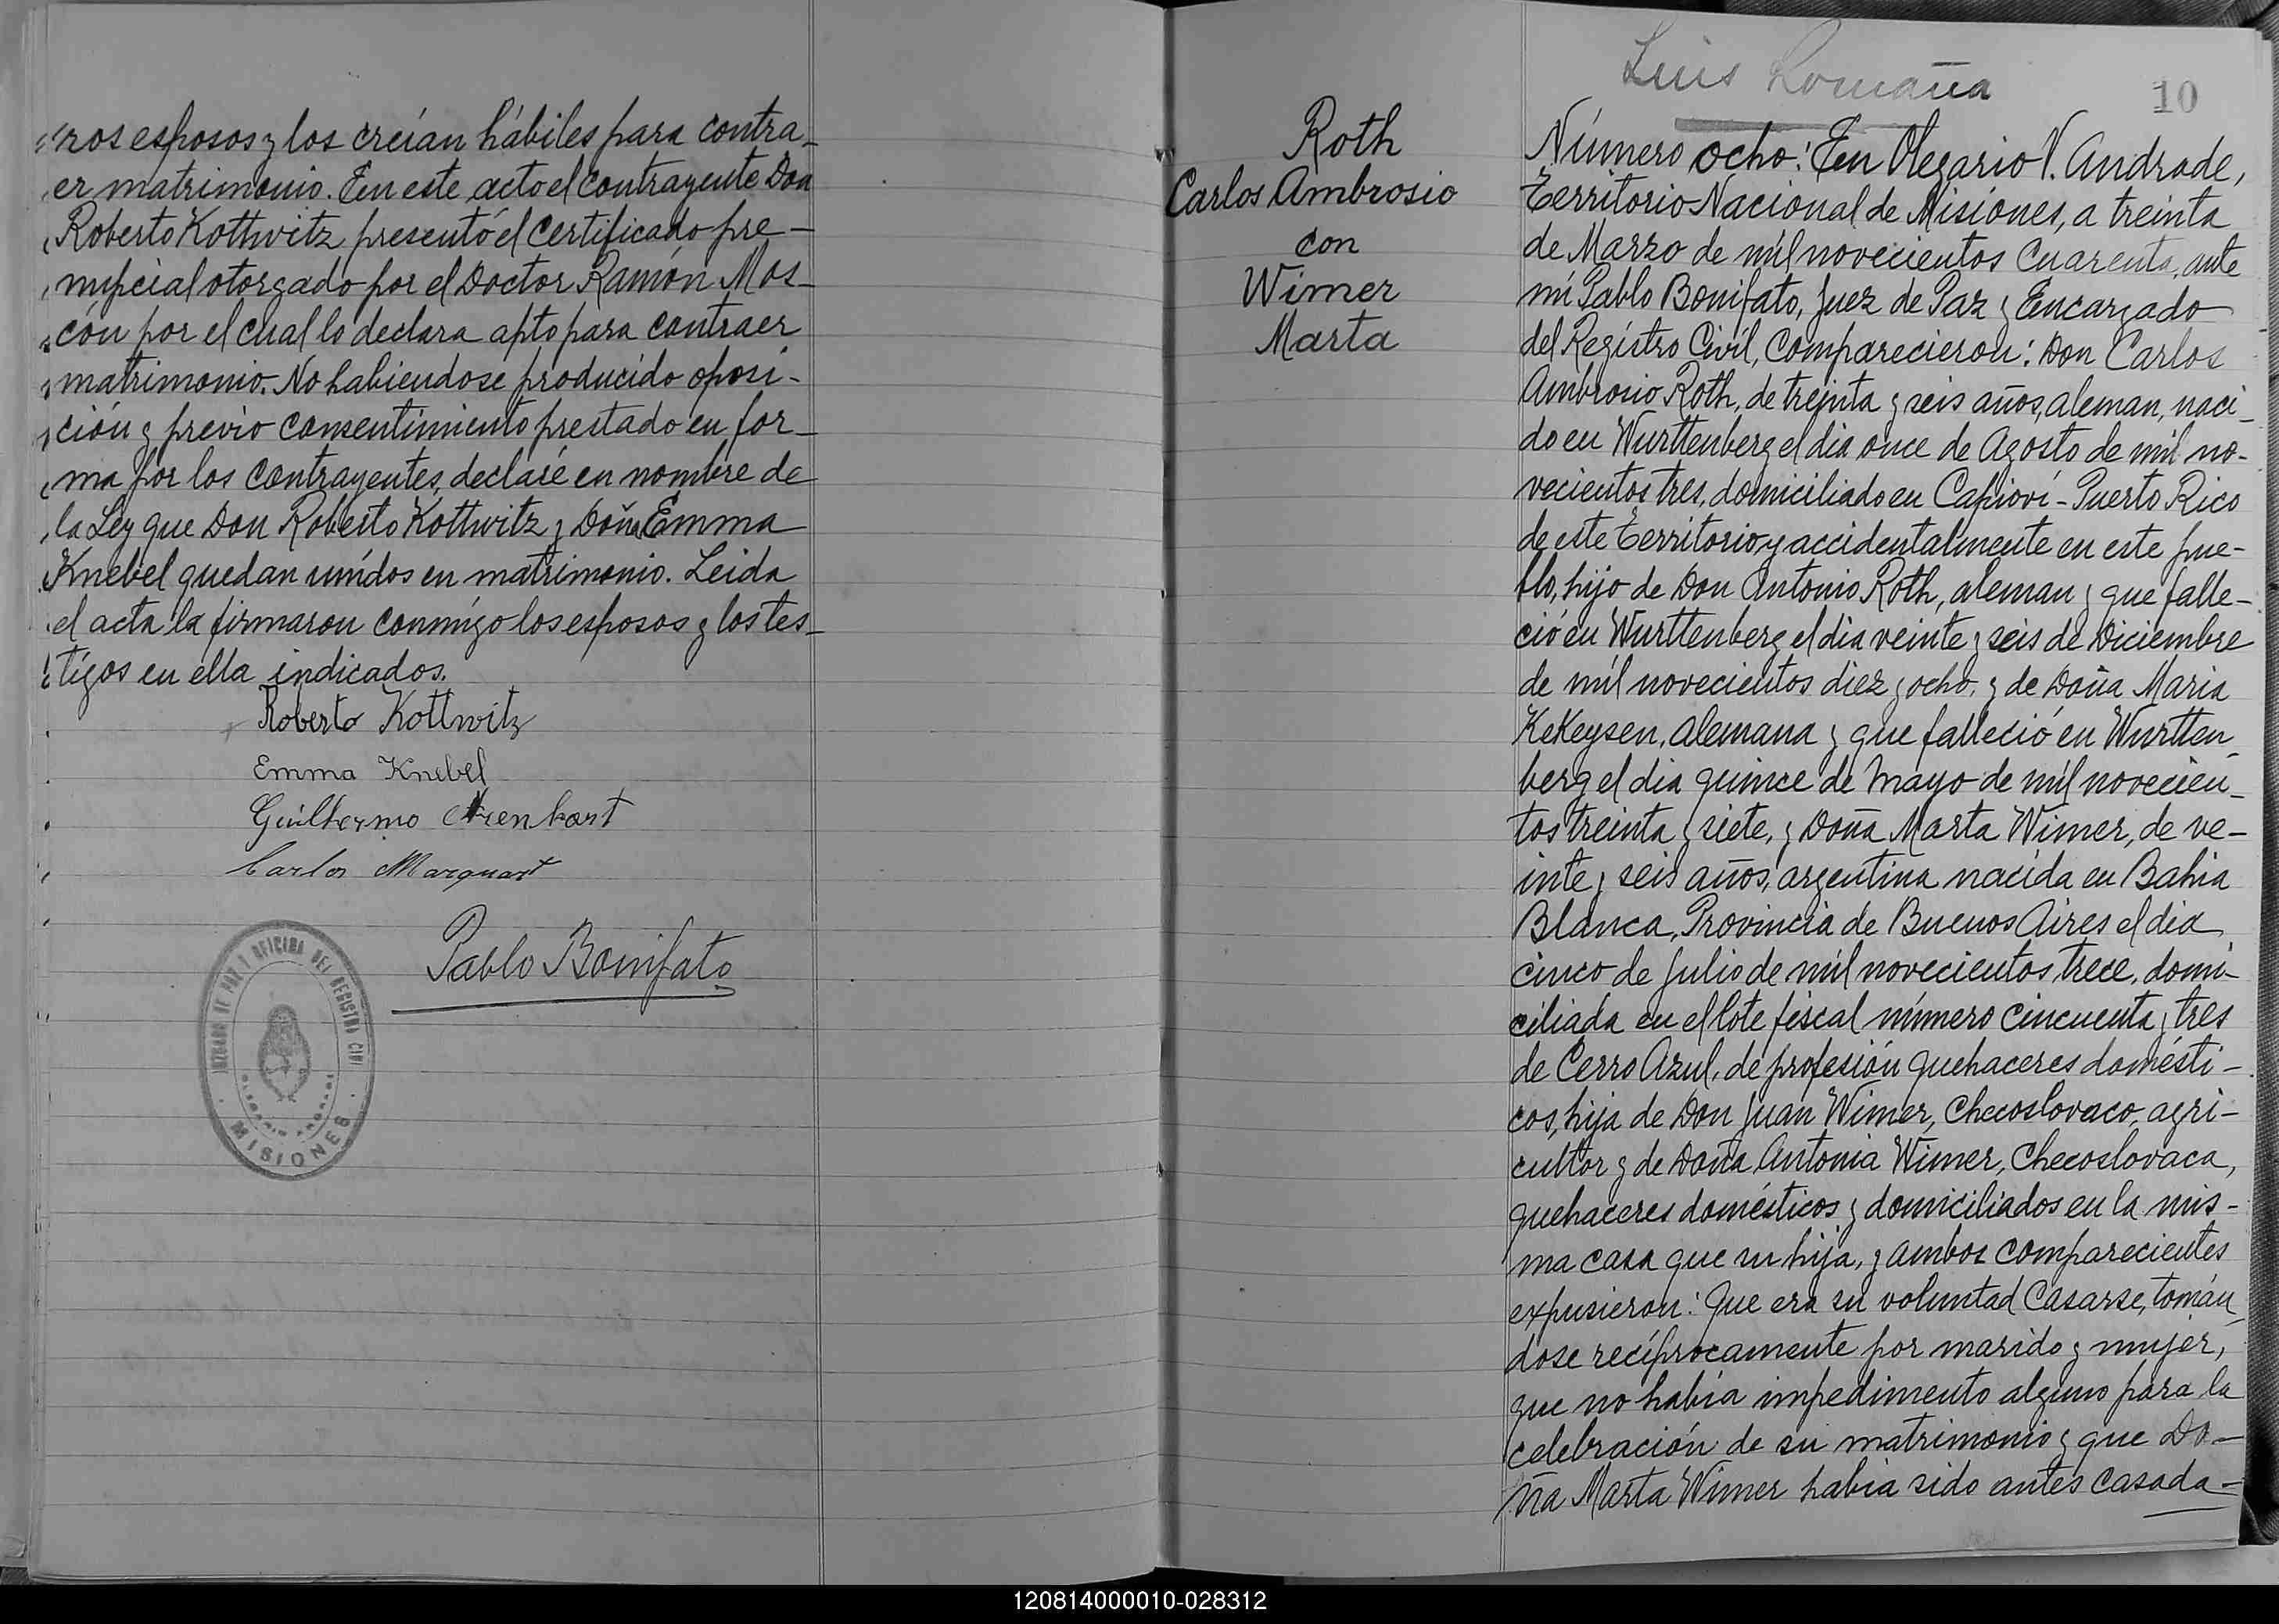 ros esposos y los creían hábiles para contra-
er matrimonio. En este acto el contrayente Don
Roberto Kottwitz presentó el certificado pre-
nupcial otorgado por el Doctor Ramón Mos-
cón por el cual lo declara apto para contraer
matrimonio. No habiendose producido oposi-
ción y previo consentimiento prestado en for-
ma por los contrayentes, declaré en nombre de
la Ley que Don Roberto Kottwitz y Doña Emma
Knebel quedan unidos en matrimonio. Leida
el acta la firmaron conmigo los esposos y los tes-
tigos en ella indicados.
Roberto Kottwitz
Emma Knebel
Guilhermo Arenhart
Carlos Marquart
Pablo Bonifato
JUZGADO DE PAZ Y OFICINA DEL REGISTRO CIVIL
MISIONES
Roth
Carlos Ambrosio
con
Wimer
Marta
Luis Romaña
10
Número ocho: En Olegario V. Andrade,
Territorio Nacional de Misiones, a treinta
de Marzo de mil novecientos cuarenta, ante
mí Pablo Bonifato, Juez de Paz y Encargado
del Registro Civil, comparecieron: Don Carlos
Ambrosio Roth, de treinta y seis años, aleman, naci-
do en Wurttenberg el dia once de Agosto de mil no-
vecientos tres, domiciliado en Capioví - Puerto Rico
de este Territorio y accidentalmente en este pue-
blo, hijo de Don Antonio Roth, aleman y que falle-
ció en Wurttenberg el dia veinte y seis de Diciembre
de mil novecientos diez y ocho, y de Doña Maria
KeKeysen, alemana y que falleció en Wurtten-
berg el dia quince de Mayo de mil novecien-
tos treinta y siete, y Doña Marta Wimer, de ve-
inte y seis años, argentina nacida en Bahia
Blanca, Provincia de Buenos Aires el dia
cinco de Julio de mil novecientos trece, domi-
ciliada en el lote fiscal número cincuenta y tres
de Cerro Azul, de profesión quehaceres domésti-
cos, hija de Don Juan Wimer, Checoslovaco, agri-
cultor y de Doña Antonia Wimer, Checoslovaca,
quehaceres domésticos y domiciliados en la mis-
ma casa que su hija, y ambos comparecientes
expusieron: Que era su voluntad casarse, tomán-
dose recíprocamente por marido y mujer,
que no había impedimento alguno para la
celebración de su matrimonio y que Do-
ña Marta Wimer habia sido antes casada-
120814000010-028312